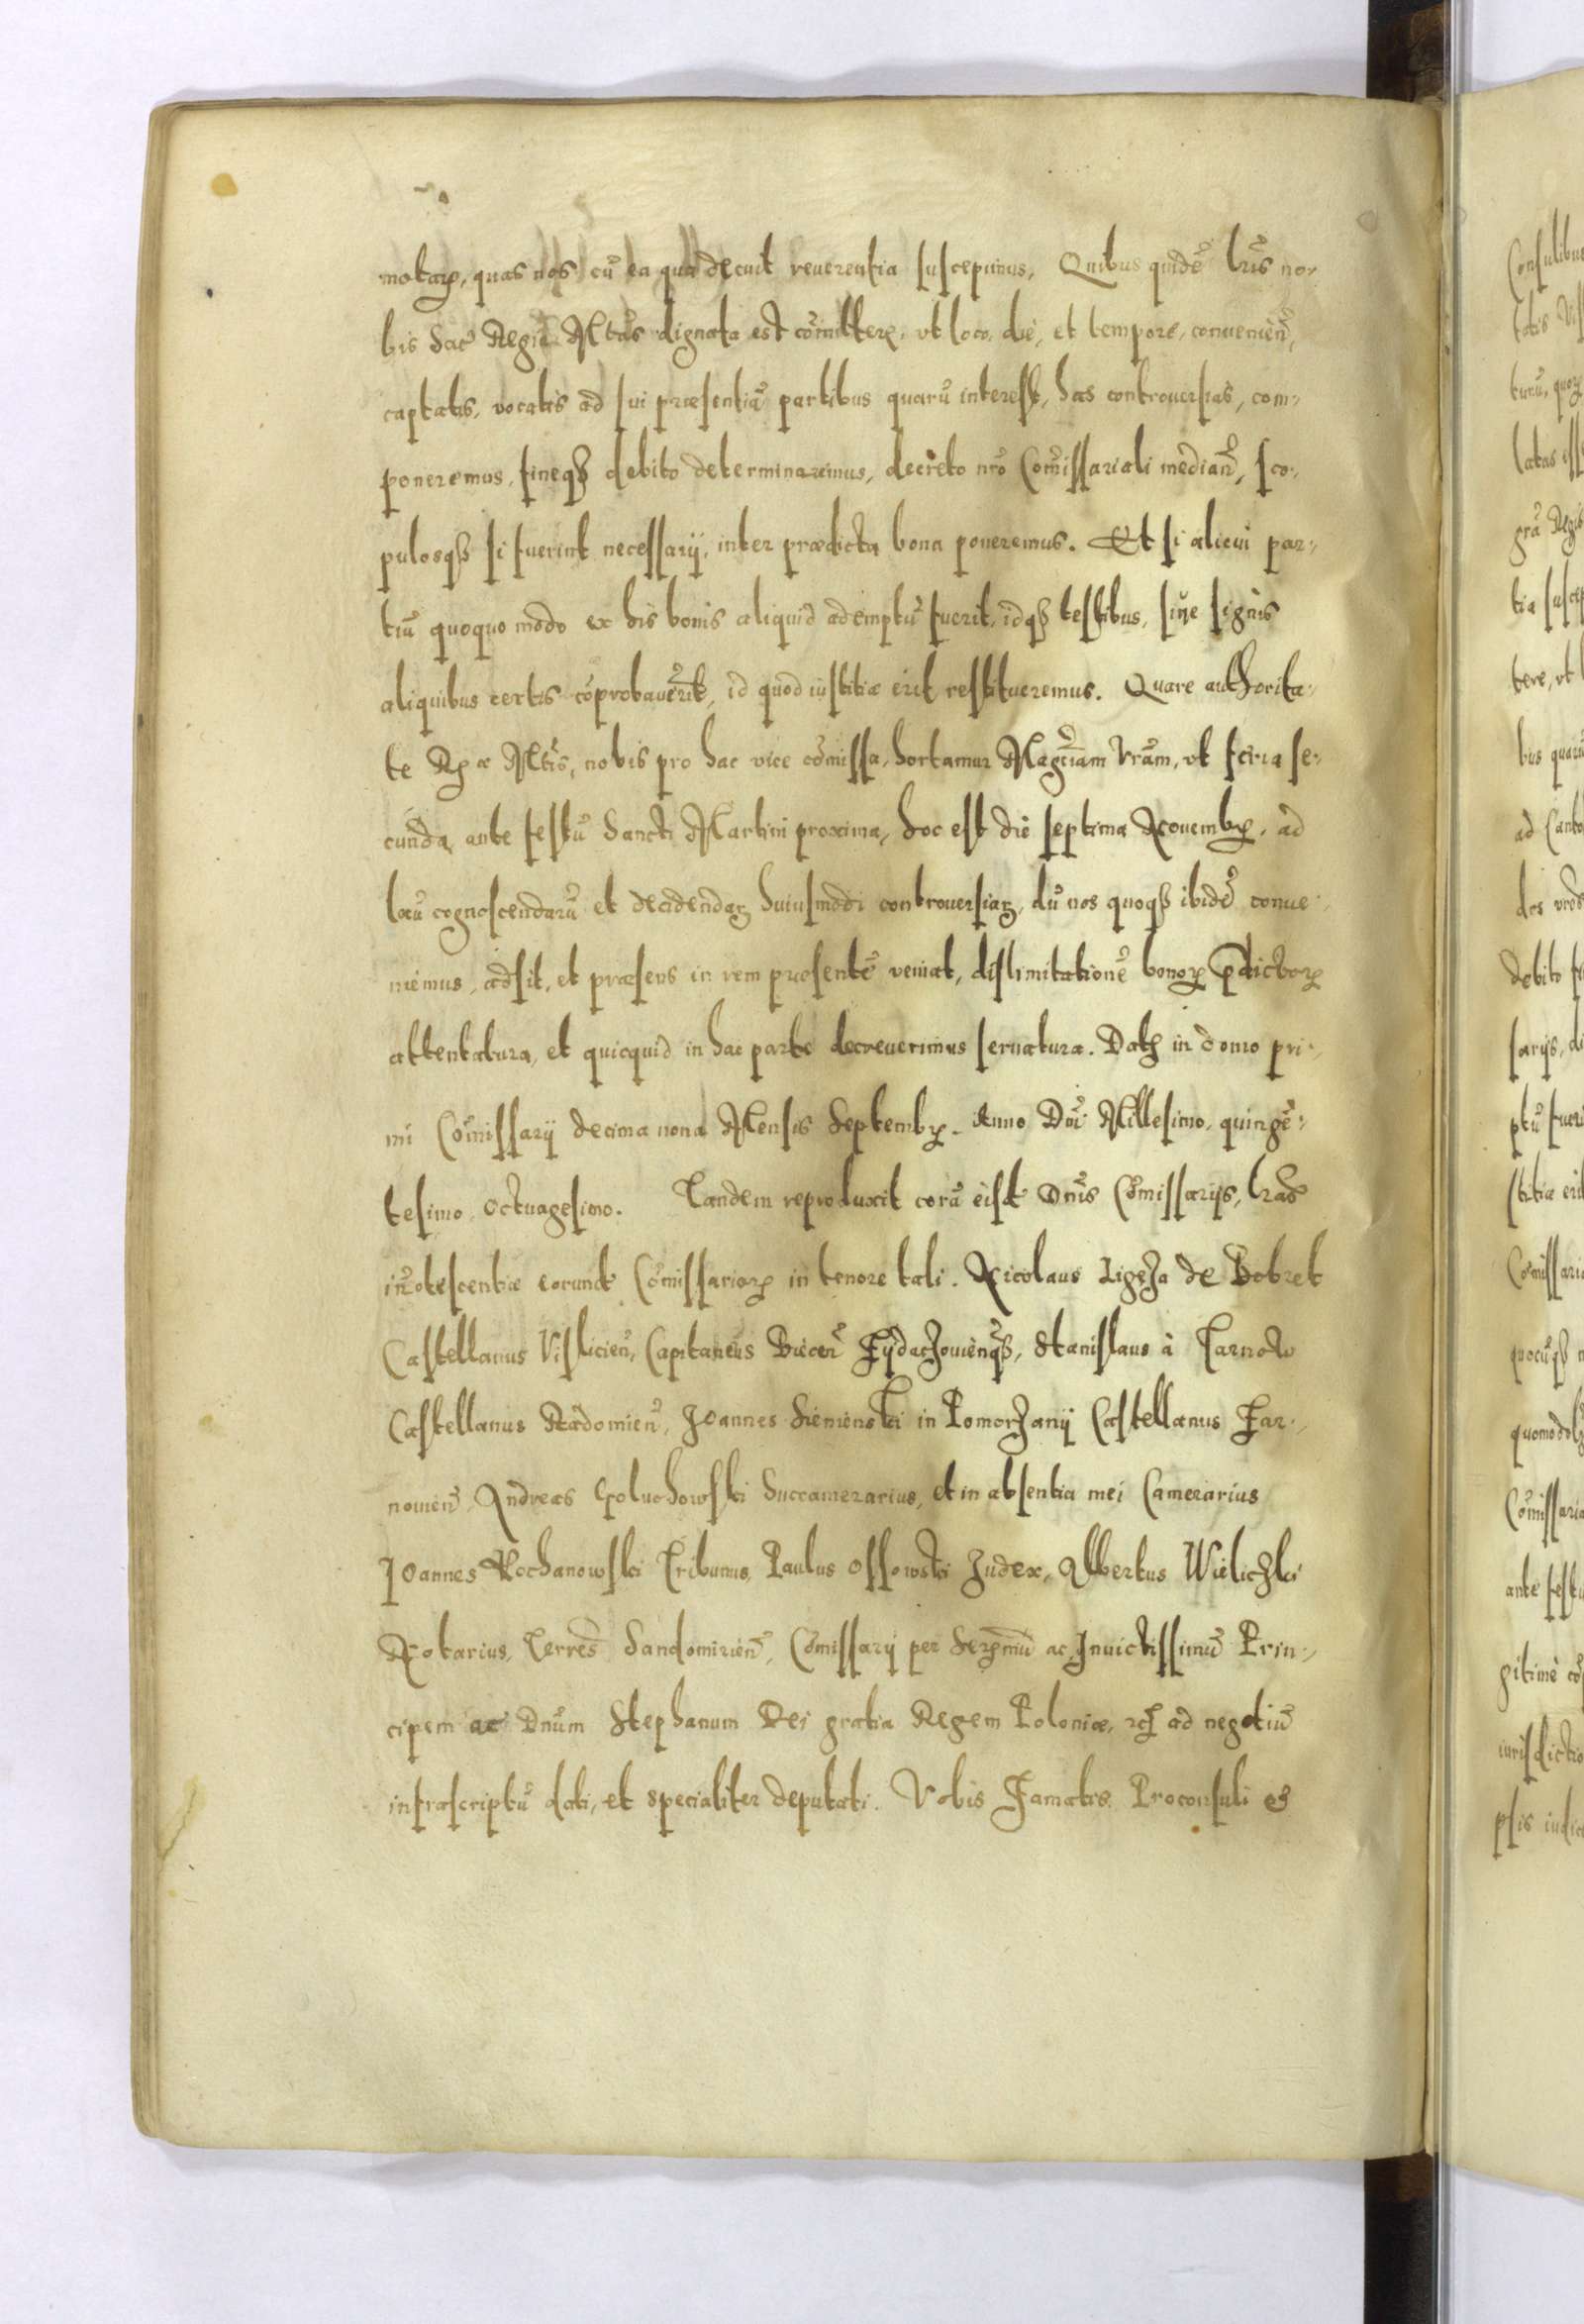 motaꝝ, quas nos cū ea qua decuit reuerentia suscepimus, Quibus quidē lr̄is no-
bis Sac̄ Regiā Mtas̄ dignata est cōmitterꝫ, vt loco, die, et tempore, conuenien̄,
captatis, vocatis ad sui præsentiā partibus quarū interest, has controuersias, com-
poneremus, fineqꝫ debito determinaremus, decreto nr̄o Com̄issariali median̄, sco-
pulosqꝫ si fuerint necessarij, inter prædicta bona poneremus. Et si alicui par-
tiū quoquo modo ex his bonis aliquid ademptū fuerit, idqꝫ testibus, siue signis
aliquibus certis cōprobauerīt, id quod iustitiæ erit restitueremus. Quare authorita-
te Rꝫæ Mtis̄, nobis pro hac vice cōmissa, hortamur Magc̄iam Vrām, vt feria se-
cunda ante festū Sancti Martini proxima, hoc est die septima Nouembꝫ, ad
locū cognoscendarū et decidendaꝝ huiusmodi controuersiaꝝ, dū nos quoqꝫ ibidē conue-
niemus, adsit, et præsens in rem præsentē veniat, dislimitationē bonoꝝ p̄dictoꝝ
attentatura, et quicquid in hac parte decreuerimus seruatura. Datꝫ in domo pri-
mi Cōmissarij decima nona Mensis Septembꝫ. Anno Dn̄i Millesimo, quingē-
tesimo, octuagesimo. Tandem reproduxit corā eisd̄ Dn̄is Cōmissarijs, lr̄as
in̄otescentiæ eorund̄ Cōmissarioꝝ in tenore tali. Nicolaus Ligęza de Bobrek
Castellanus Vislicien̄, Capitaneus Biecen̄ Zydaczouien̄qꝫ, Stanislaus à Tarnow
Castellanus Radomien̄, Joannes Siemienski in Pomorzanij Castellanus Zar-
nouien̄ Andreas Goluchowski Succamerarius, et in absentia mei Camerarius
Joannes Kochanowski Tribunus, Paulus Ossowski Judex, Albertus Wieliczki
Notarius, Terres̄ Sandomirien̄, Cōmissarij per Serꝫmū ac Inuictissimū Prin-
cipem ac Dn̄um Stephanum Dei gratia Regem Poloniæ, ꝛcꝫ ad negotiū
infrascriptū dati, et specialiter deputati. Vobis Famatis Proconsuli et